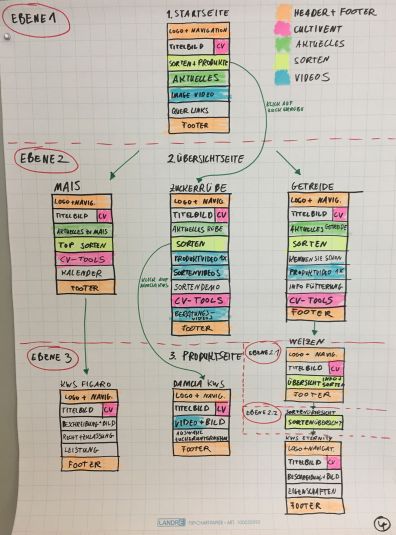 EBENE 1
1. STARTSEITE
LOGO + NAVIGATION
TITELBILD CV
SORTEN + PRODUKTE
AKTUELLES
IMAGE VIDEO
QUER LINKS
FOOTER
HEADER + FOOTER
CULTIVENT
AKTUELLES
SORTEN
VIDEOS
KLICK AUF
ZUCKERRÜBE
EBENE 2
2. ÜBERSICHTSEITE
MAIS
LOGO + NAVIG.
TITELBILD CV
AKTUELLES ZU MAIS
TOP SORTEN
CV-TOOLS
KALENDER
FOOTER
ZUCKERRÜBE
LOGO + NAVIG.
TITELBILD CV
AKTUELLES RÜBE
SORTEN
PRODUKTVIDEO 1x
SORTENVIDEOS
SORTENDEMO
CV-TOOLS
BERATUNGS-
VIDEOS
FOOTER
KLICK AUF
GETREIDE
LOGO + NAVIG.
TITELBILD CV
AKTUELLES GETREIDE
SORTEN
KENNEN SIE SCHON
PRODUKTVIDEO 1x
INFO FÜTTERUNG
CV-TOOLS
FOOTER
EBENE 3
3. PRODUKTSEITE
KWS FIGARO
LOGO + NAVIG.
TITELBILD CV
BESCHREIBUNG + BILD
LEISTUNG
FOOTER
DANICIA KWS
LOGO + NAVIG.
TITELBILD CV
VIDEO + BILD
FOOTER
EBENE 2.1
WEIZEN
LOGO + NAVIG.
TITELBILD CV
ÜBERSICHT SORTEN
FOOTER
EBENE 2.2
SORTENÜBERSICHT
SORTENÜBERSICHT
KWS ETERNITY
LOGO + NAVIGAT.
TITELBILD CV
BESCHREIBUNG + BILD
EIGENSCHAFTEN
FOOTER
LANDRÉ
4